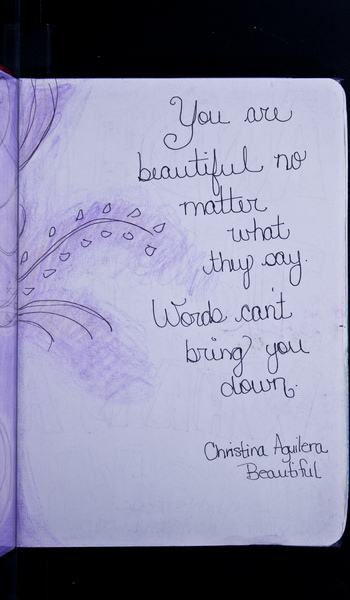 You are
beautiful no
matter
what
they say.
Words can't
bring you
down.
Christina Aguilera
Beautiful